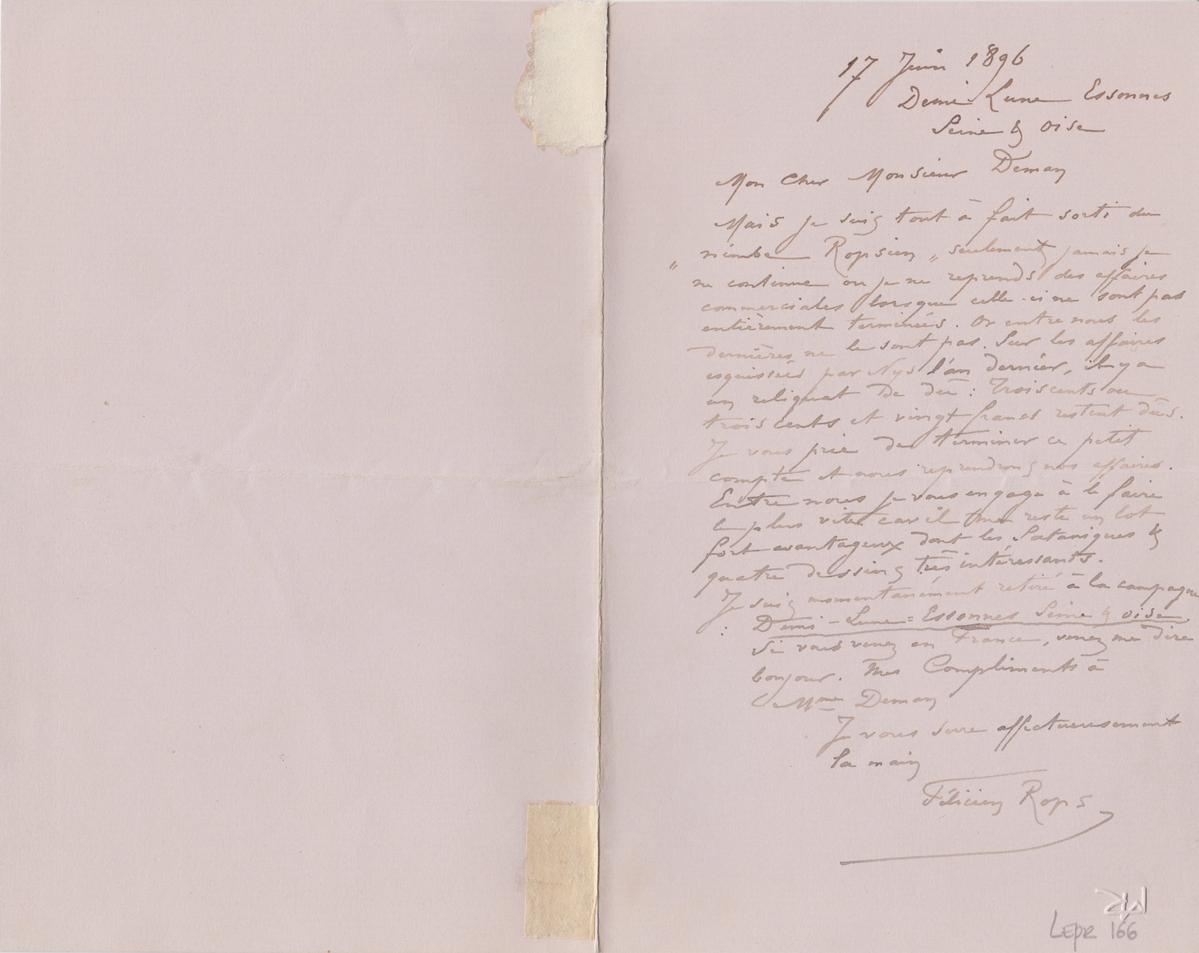 17 Juin 1896
Demi-Lune Essonnes
Seine & Oise
Mon Cher Monsieur Deman
Mais je suis tout à fait sorti du
" nimbe Ropsien „ seulement jamais je
ne continue ou je ne reprends des affaires
commerciales lorsque celle-ci ne sont pas
entièrement terminées. Or entre nous les
dernières ne le sont pas. Sur les affaires
esquissées par Nys l'an dernier, il y a
un reliquat de dû : Trois cents ou
trois cents et vingt francs restent dûs.
Je vous prie de terminer ce petit
compte et nous reprendrons nos affaires.
Entre nous je vous engage à le faire
le plus vite car il me reste un lot
fort avantageux dont les Sataniques &
quatre dessins très intéressants.
Je suis momentanément retiré à la campagne
: Demi-Lune = Essonnes Seine & Oise.
Si vous venez en France, venez me dire
bonjour. Mes Compliments à
Mme Deman
Je vous serre affectueusement
la main
Félicien Rops
LEpr 166